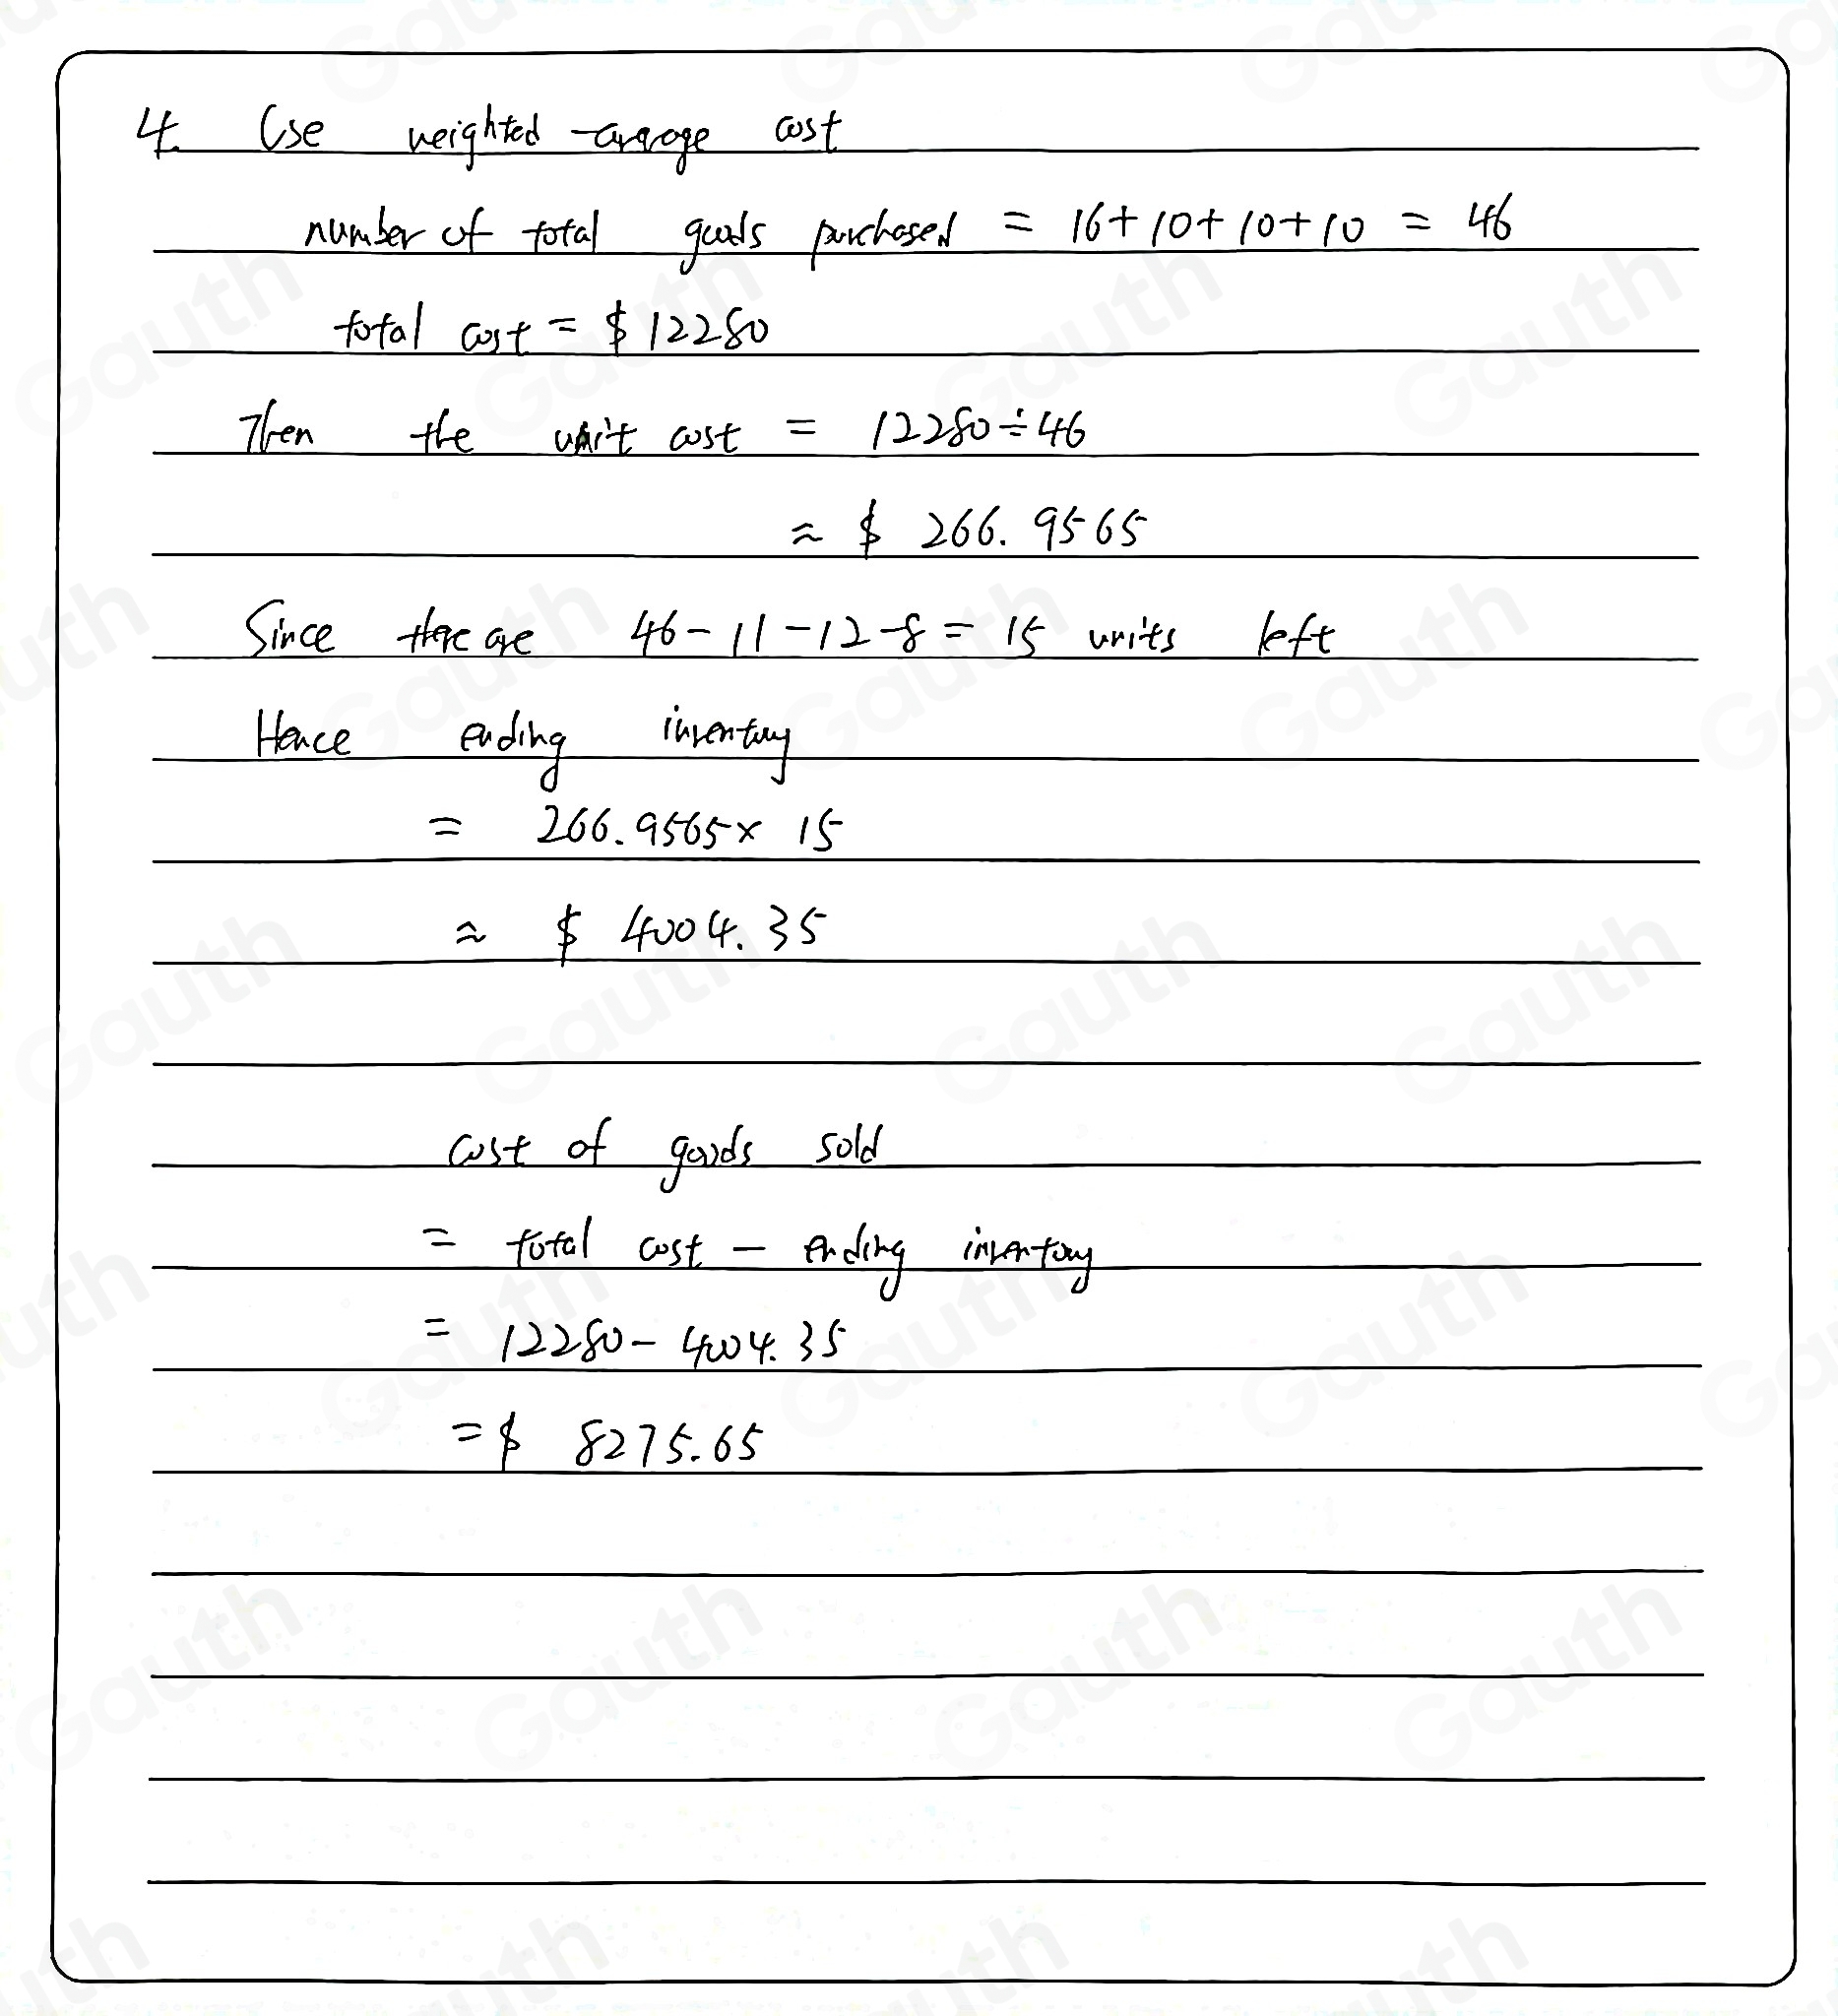 4. Use weighted-average cost
number of total goods purchased = 16+10+10+10 = 46
total cost = $12280
Then the unit cost = 12280÷46
≈ $ 266.9565
Since there are 46-11-12-8= 15 units left
Hence ending inventory
= 266.9565× 15
≈ $ 4004.35
cost of goods sold
= total cost - ending inventory
= 12280- 4004.35
=$ 8275.65